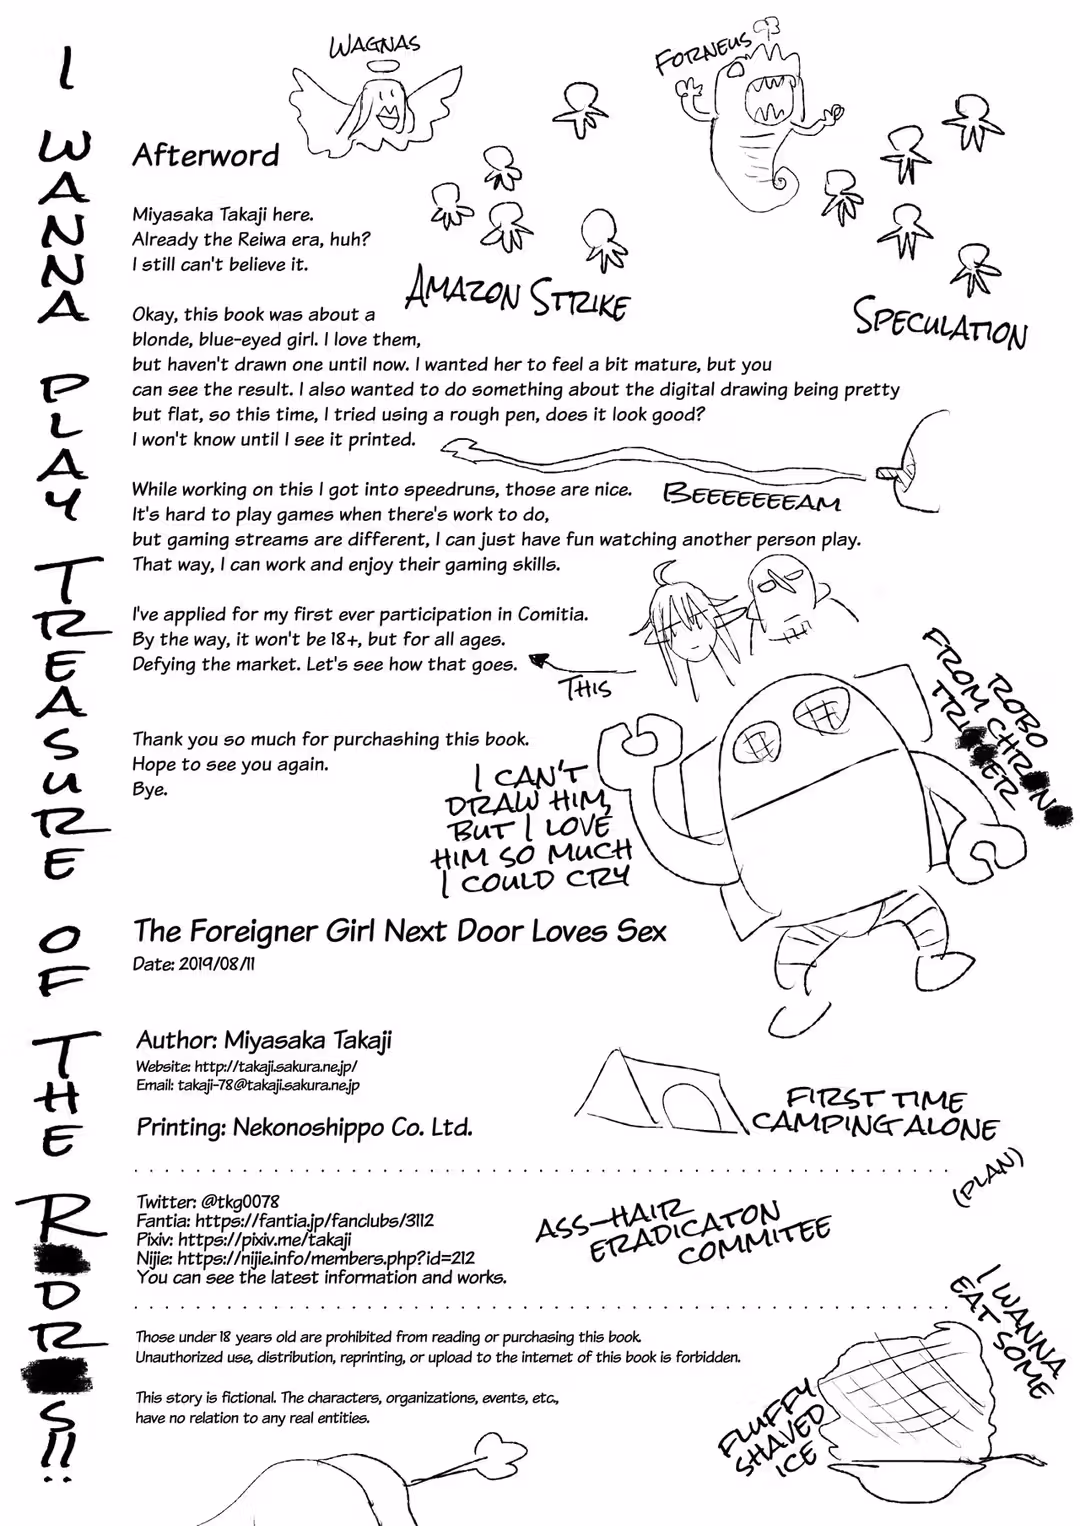 I WANNA PLAY TREASURE OF THE R DR S!!
WAGNAS
FORNEUS
Afterword
Miyasaka Takaji here.
Already the Reiwa era, huh?
I still can't believe it.
AMAZON STRIKE
SPECULATION
Okay, this book was about a
blonde, blue-eyed girl. I love them,
but haven't drawn one until now. I wanted her to feel a bit mature, but you
can see the result. I also wanted to do something about the digital drawing being pretty
but flat, so this time, I tried using a rough pen, does it look good?
I won't know until I see it printed.
BEEEEEEEAM
While working on this I got into speedruns, those are nice.
It's hard to play games when there's work to do,
but gaming streams are different, I can just have fun watching another person play.
That way, I can work and enjoy their gaming skills.
I've applied for my first ever participation in Comitia.
By the way, it won't be 18+, but for all ages.
Defying the market. Let's see how that goes.
THIS
ROBO
FROM CHR N
TRI ER
Thank you so much for purchashing this book.
Hope to see you again.
Bye.
I CAN'T
DRAW HIM,
BUT I LOVE
HIM SO MUCH
I COULD CRY
The Foreigner Girl Next Door Loves Sex
Date: 2019/08/11
Author: Miyasaka Takaji
Website: http://takaji.sakura.ne.jp/
Email: takaji-78@takaji.sakura.ne.jp
Printing: Nekonoshippo Co. Ltd.
FIRST TIME
CAMPING ALONE
(PLAN)
Twitter: @tkg0078
Fantia: https://fantia.jp/fanclubs/3112
Pixiv: https://pixiv.me/takaji
Nijie: https://nijie.info/members.php?id=212
You can see the latest information and works.
ASS-HAIR
ERADICATON
COMMITEE
Those under 18 years old are prohibited from reading or purchasing this book.
Unauthorized use, distribution, reprinting, or upload to the internet of this book is forbidden.
This story is fictional. The characters, organizations, events, etc.,
have no relation to any real entities.
I WANNA
EAT SOME
FLUFFY
SHAVED
ICE